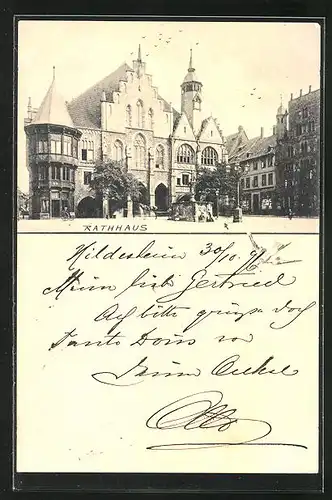 RATHHAUS
Hildesheim 30/10.
Mein lieb Gertried
bitte grüsse doch
Tante Doris von
Deinem Onkel
Otto